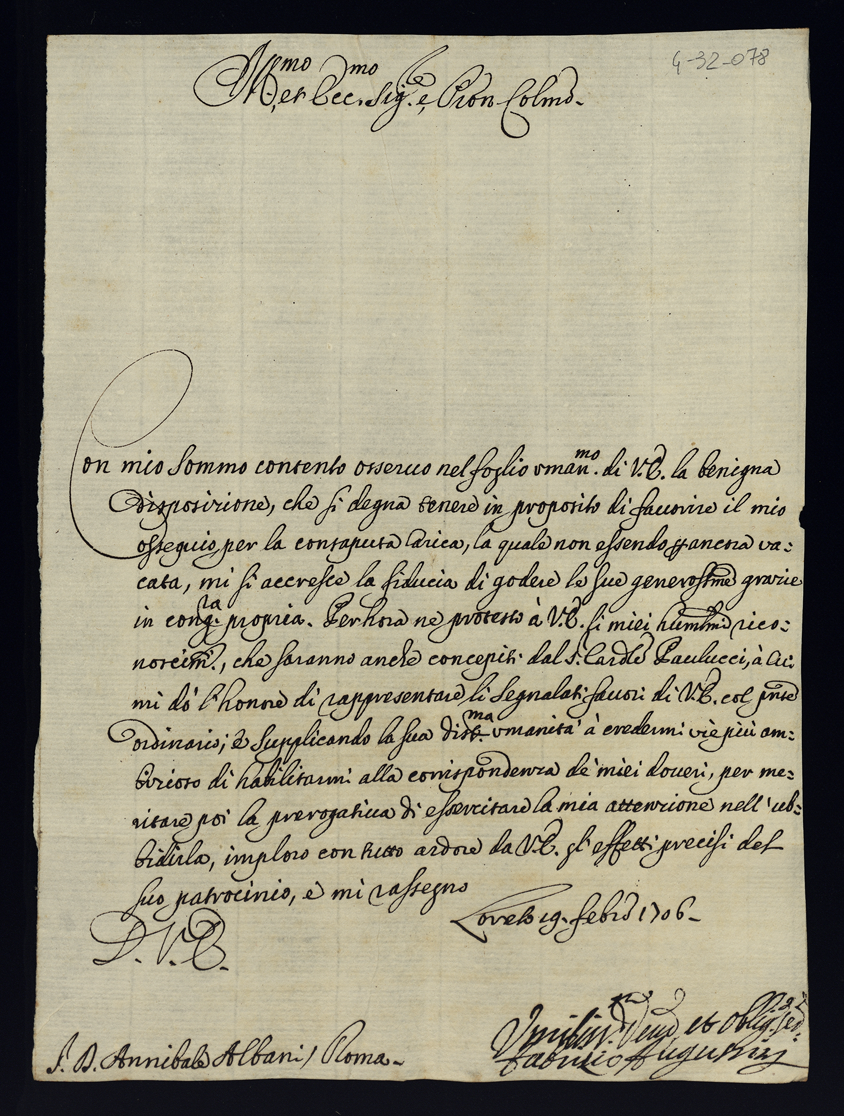 4-32-078
Ill.mo et Ecc.mo Sig.re e Pron Colmo.
Con mio sommo contento osseruo nel foglio vman.mo di V.E. la benigna
disposizione, che si degna tenere in proposito di fauorire il mio
osseguio per la consaputa Carica, la quale non essendo ancora va=
cata, mi si accresce la fiducia di godere le sue generosme grazie
in cong.ra propria. Per hora ne protesto à V.E. li miei hummi rico=
noscim.ti, che saranno anche concepiti dal S. Cardle Paulucci, à cui
mi dò l'honore di rappresentare li segnalati fauori di V.E. col pnte
ordinario; e supplicando la sua dist.ma vmanità à credermi vie più am=
bizioso di habilitarmi alla corrispondenza de' miei doueri, per me=
ritare poi la prerogatiua di essercitare la mia attenzione nell'ub=
bidirla, imploro con tutto ardore da V.E. gl'effetti precisi del
suo patrocinio, e mi rassegno
Loreto 19. Febro 1706.
D. V. E.
S. D. Annibale Albani / Roma.
Vmiliss.mo Deuo et Oblig. Ser.